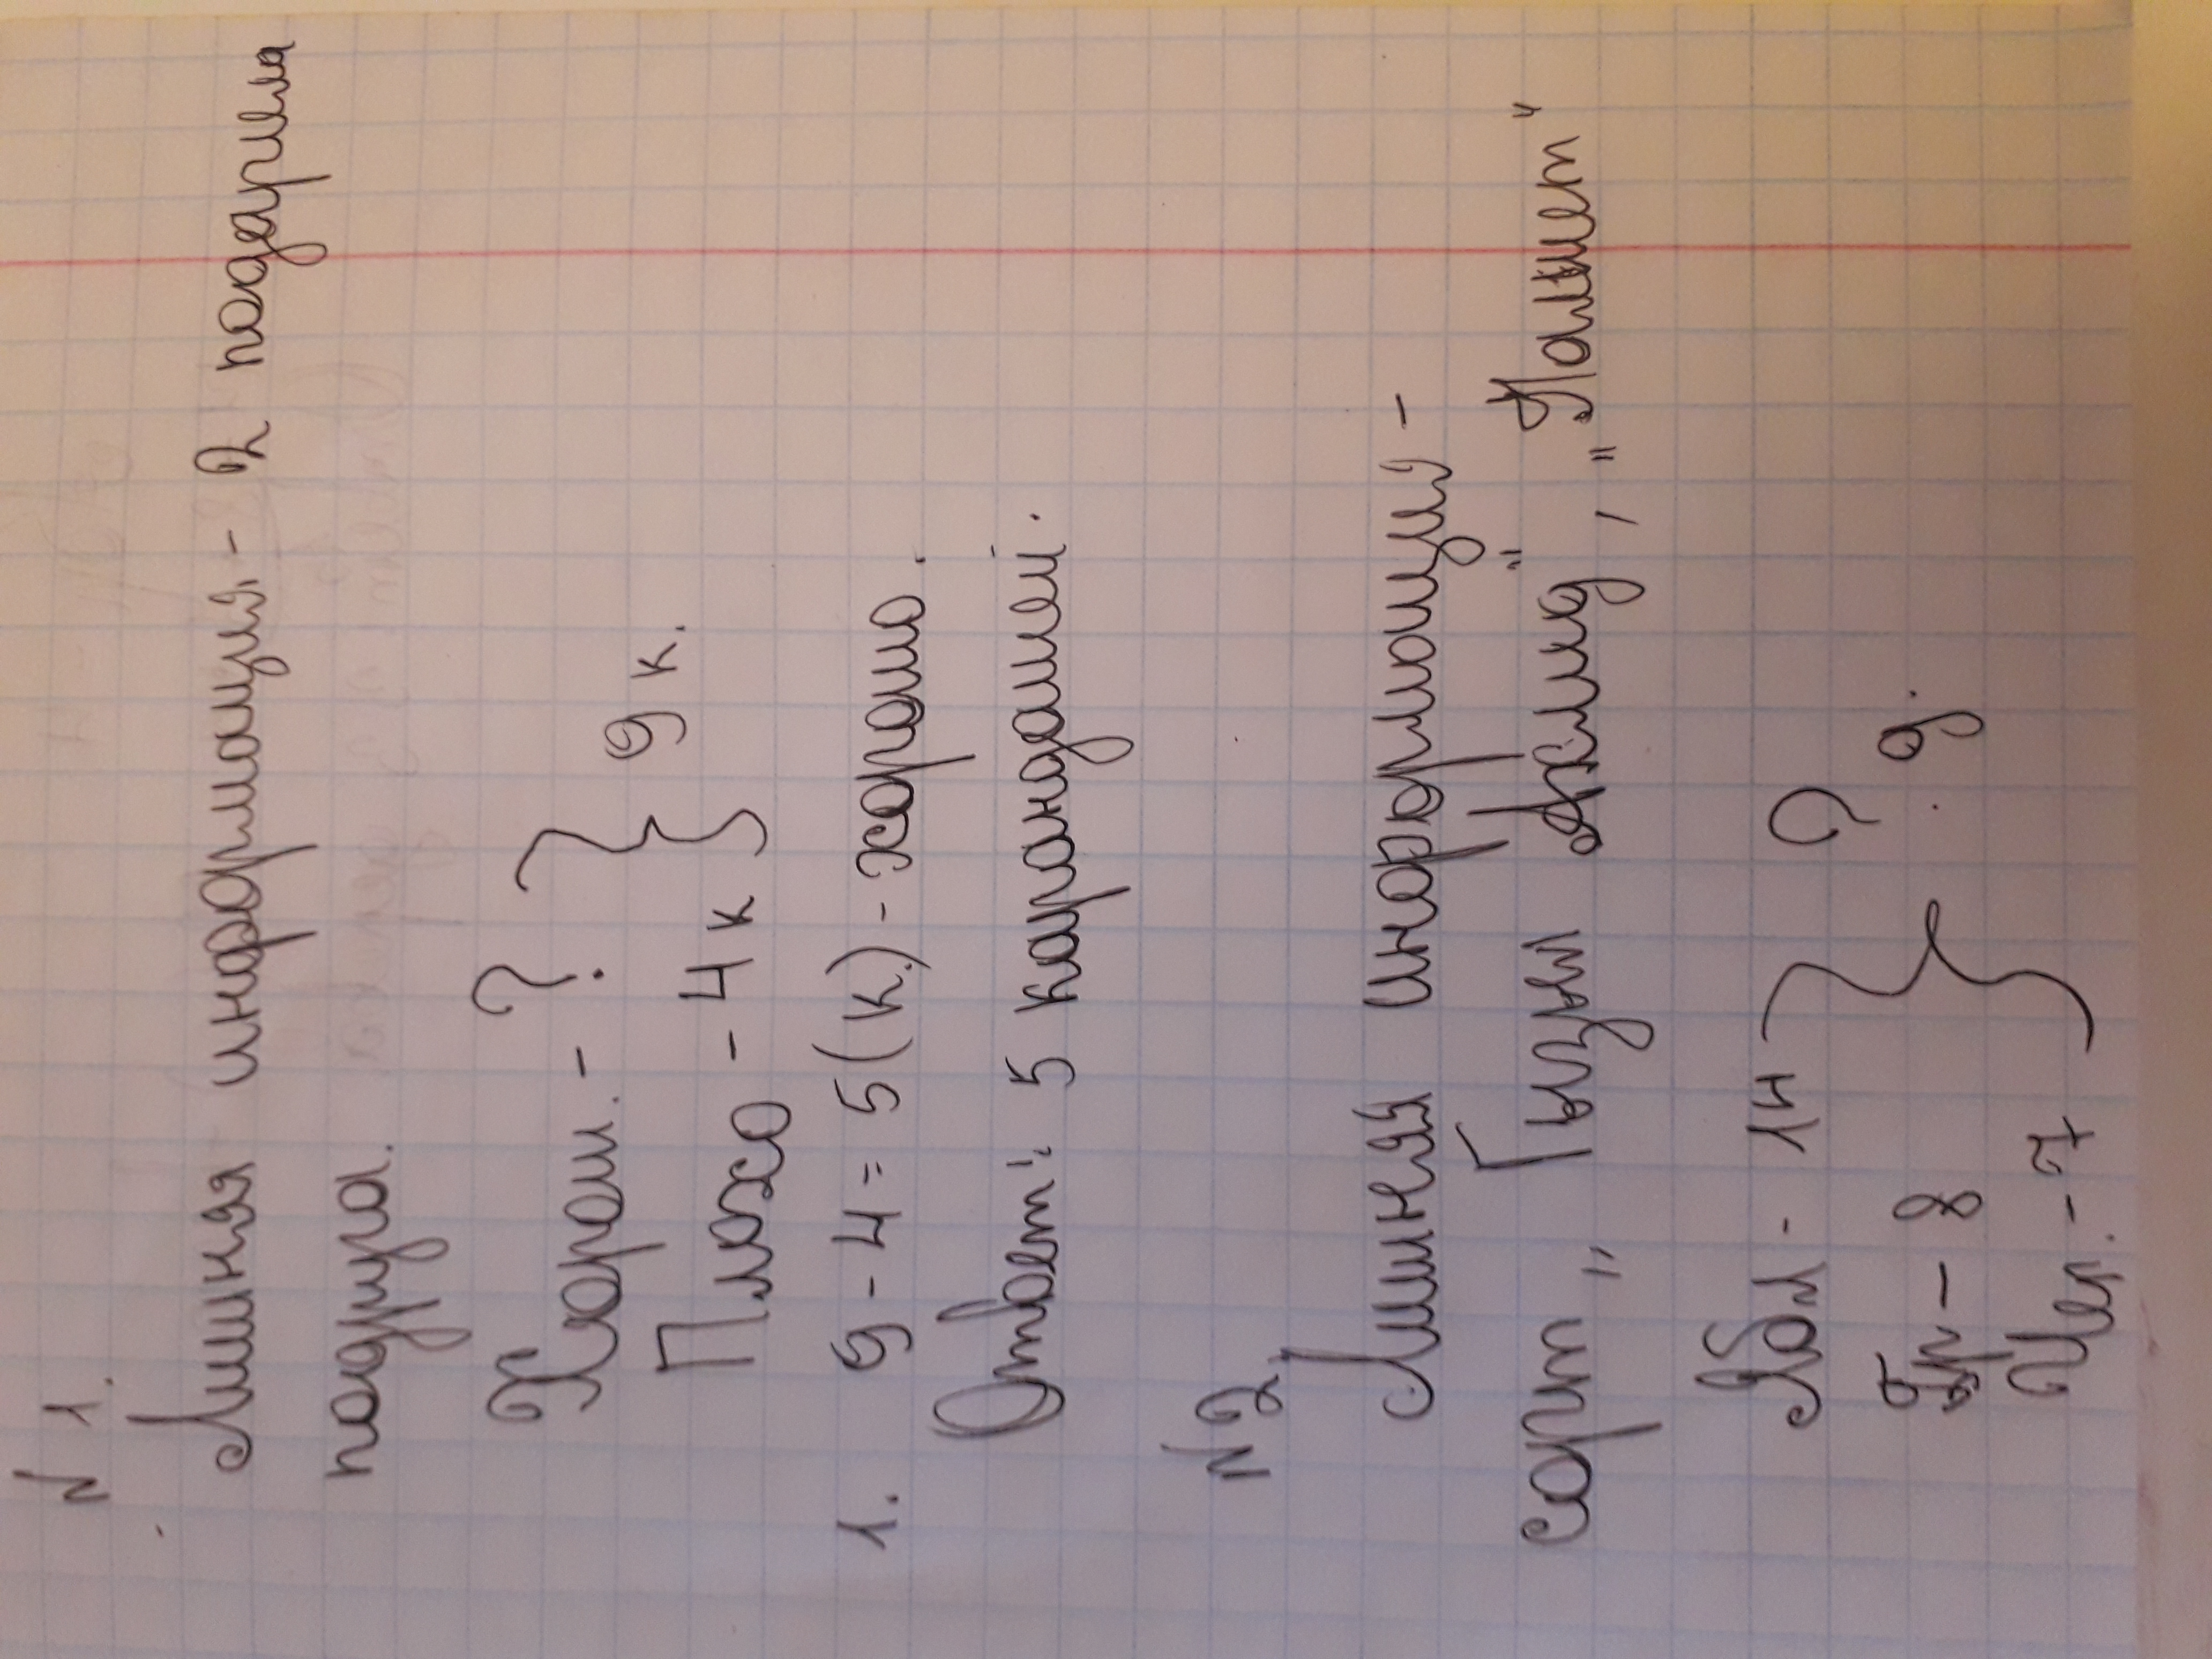 N 1.
Лишняя информация - 2 подарила
подруга.
Хорош. - ?
9 к.
Плохо - 4 к
1. 9 - 4 = 5 (к.) - хорошо.
Ответ: 5 карандашей.
N2
Лишняя информация -
сорт „Гызыл Ахмед", „Палмет"
Ябл - 14
? д.
Гр - 8
Чер. - 7